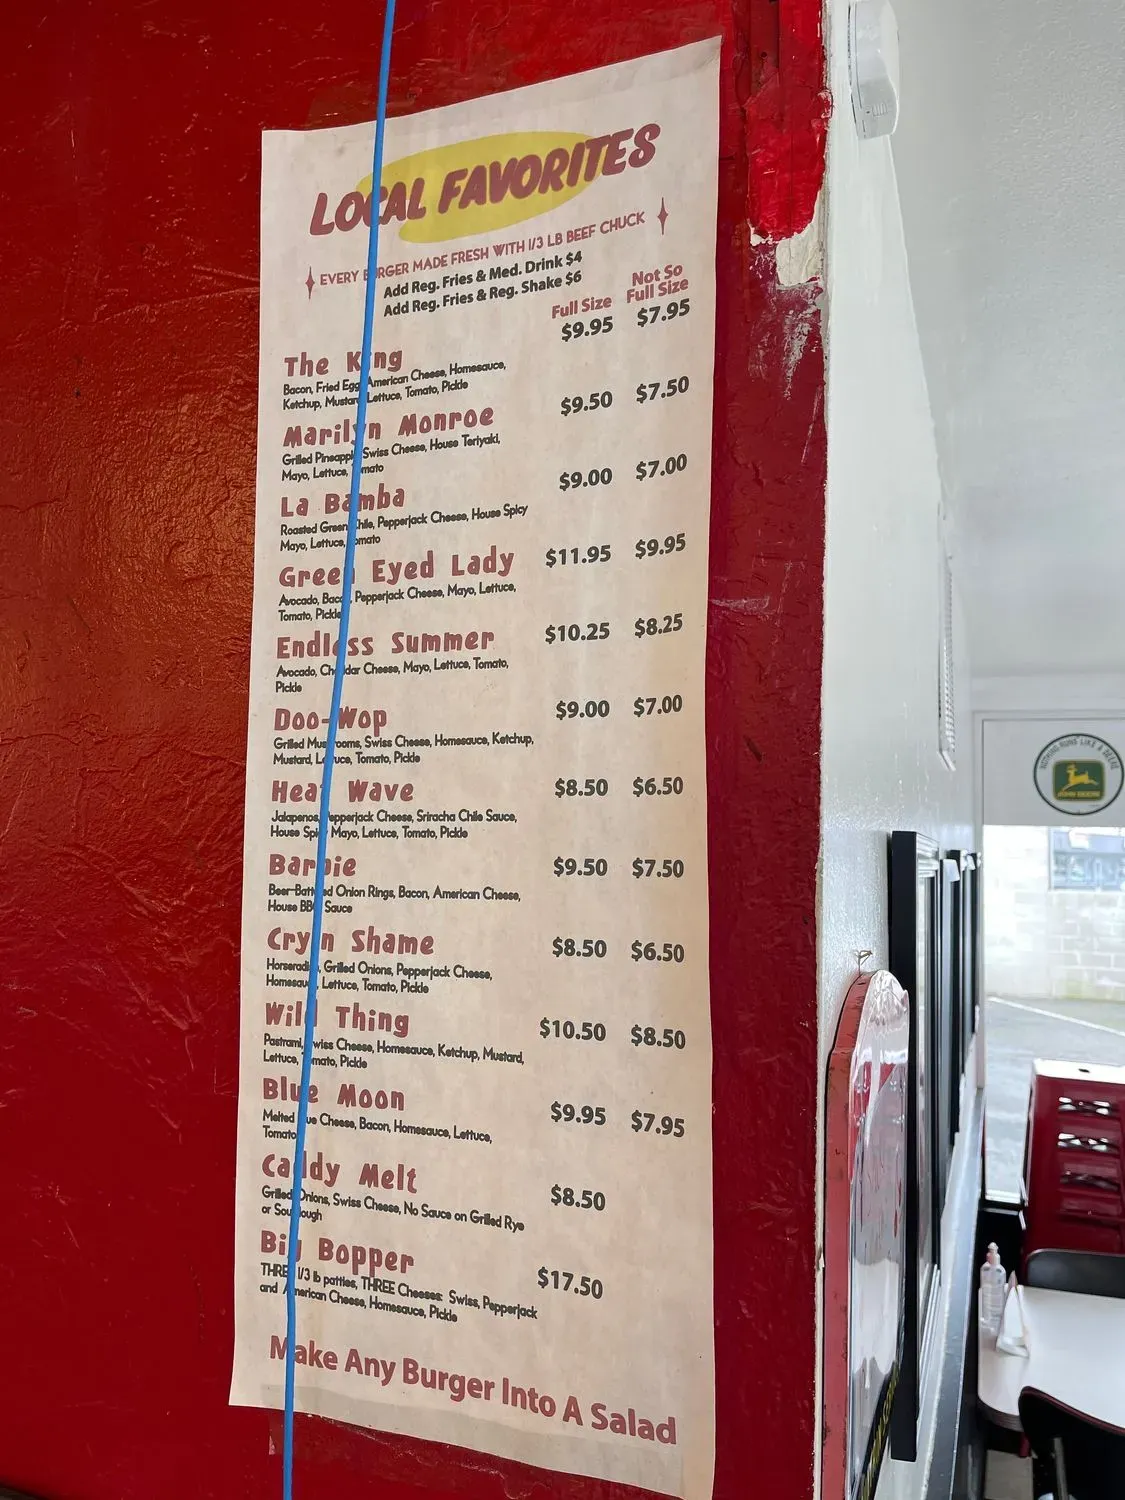 LOCAL FAVORITES
EVERY BURGER MADE FRESH WITH 1/3 LB BEEF CHUCK
Add Reg. Fries & Med. Drink $4
Add Reg. Fries & Reg. Shake $6
Full Size
Not So
Full Size
The King $9.95 $7.95
Bacon, Fried Egg, American Cheese, Homesauce,
Ketchup, Mustard, Lettuce, Tomato, Pickle
Marilyn Monroe $9.50 $7.50
Grilled Pineapple, Swiss Cheese, House Teriyaki,
Mayo, Lettuce, Tomato
La Bamba $9.00 $7.00
Roasted Green Chile, Pepperjack Cheese, House Spicy
Mayo, Lettuce, Tomato
Green Eyed Lady $11.95 $9.95
Avocado, Bacon, Pepperjack Cheese, Mayo, Lettuce,
Tomato, Pickle
Endless Summer $10.25 $8.25
Avocado, Cheddar Cheese, Mayo, Lettuce, Tomato,
Pickle
Doo-Wop $9.00 $7.00
Grilled Mushrooms, Swiss Cheese, Homesauce, Ketchup,
Mustard, Lettuce, Tomato, Pickle
Heat Wave $8.50 $6.50
Jalapenos, Pepperjack Cheese, Sriracha Chile Sauce,
House Spicy Mayo, Lettuce, Tomato, Pickle
Barbie $9.50 $7.50
Beer-Battered Onion Rings, Bacon, American Cheese,
House BBQ Sauce
Cryin Shame $8.50 $6.50
Horseradish, Grilled Onions, Pepperjack Cheese,
Homesauce, Lettuce, Tomato, Pickle
Wild Thing $10.50 $8.50
Pastrami, Swiss Cheese, Homesauce, Ketchup, Mustard,
Lettuce, Tomato, Pickle
Blue Moon $9.95 $7.95
Melted Blue Cheese, Bacon, Homesauce, Lettuce,
Tomato
Caddy Melt $8.50
Grilled Onions, Swiss Cheese, No Sauce on Grilled Rye
or Sourdough
Big Bopper $17.50
THREE 1/3 lb patties, THREE Cheeses: Swiss, Pepperjack
and American Cheese, Homesauce, Pickle
Make Any Burger Into A Salad
NOTHING RUNS LIKE A DEERE
JOHN DEERE